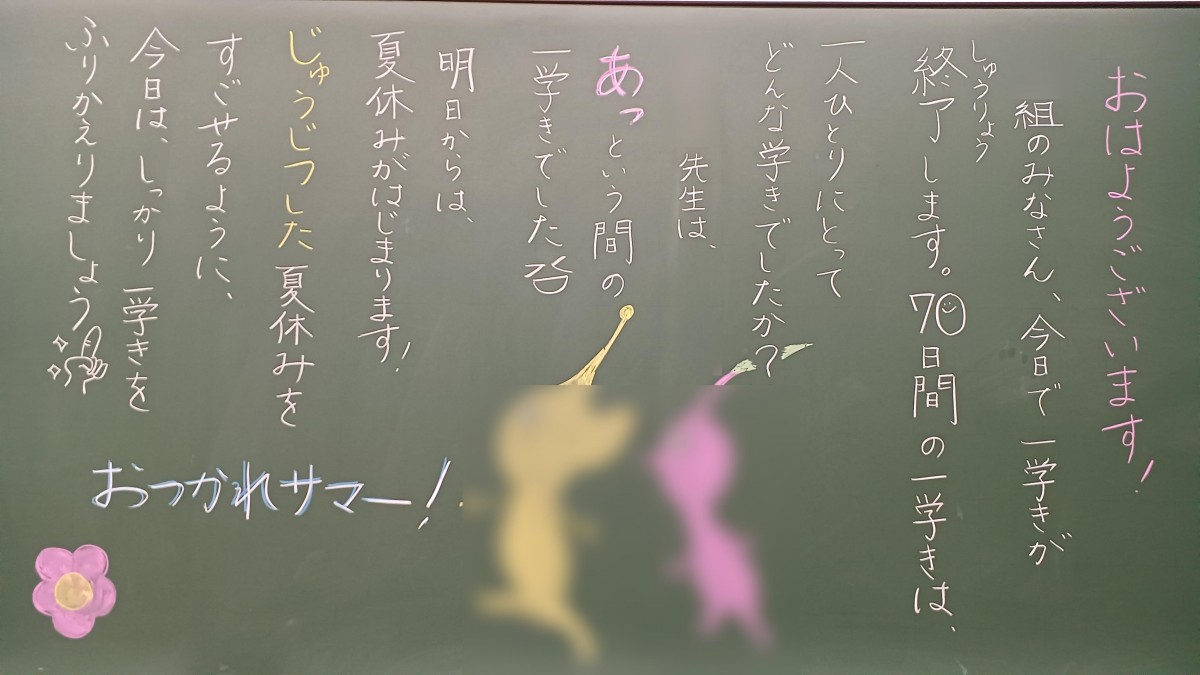 おはようございます!
組のみなさん、今日で一学きが
しゅうりょう
終了します。70日間の一学きは、
一人ひとりにとって
どんな学きでしたか?
先生は、
あっという間の
一学きでした
明日からは、
夏休みがはじまります!
じゅうじつした夏休みを
すごせるように、
今日は、しっかり一学きを
ふりかえりましょう
おつかれサマー!